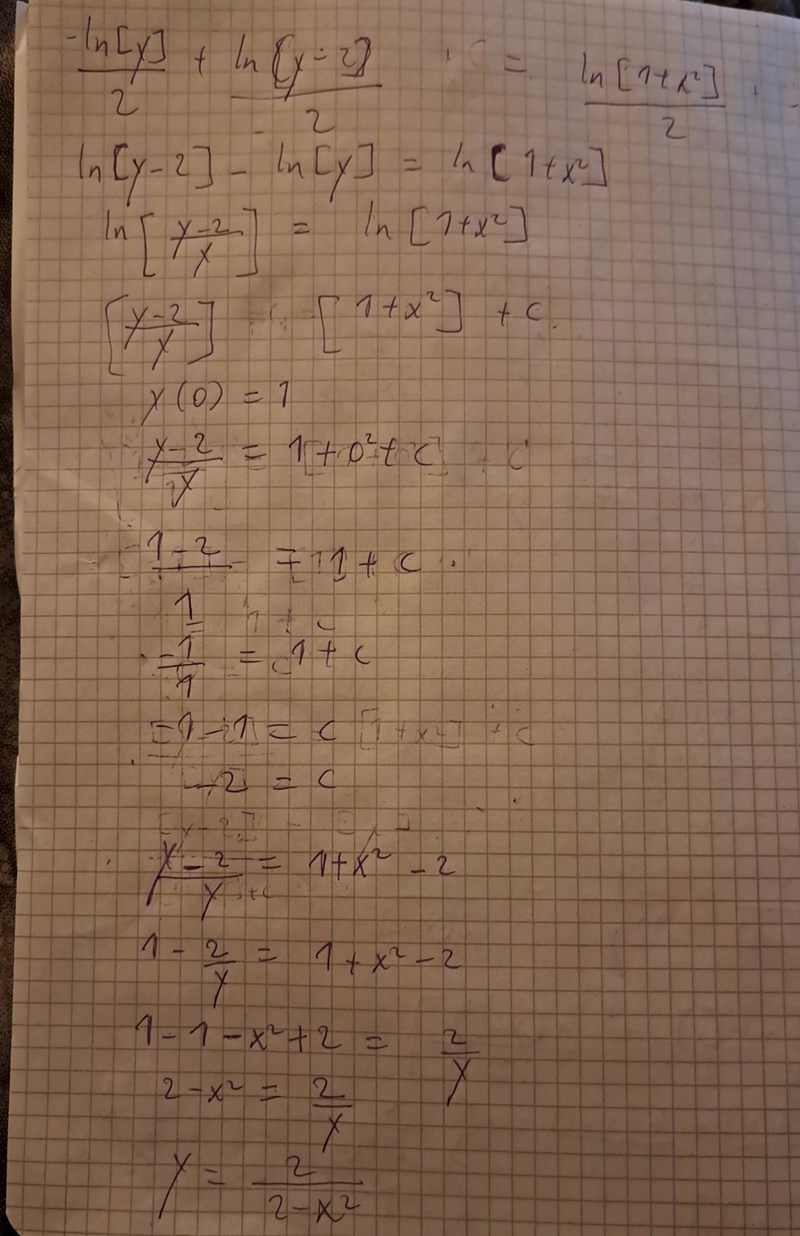 -ln[y]/2 + ln[y-2]/2 = ln[1+x²]/2
ln[y-2] - ln[y] = ln[1+x²]
ln[y-2/y] = ln[1+x²]
[y-2/y] [1+x²] + c.
y(0) = 1
y-2/y = 1+0²+c
1-2/1 = 1+c
-1/1 = 1+c
-1-1 = c
-2 = c
y-2/y = 1+x²-2
1-2/y = 1+x²-2
1-1-x²+2 = 2/y
2-x² = 2/y
y = 2/2-x²